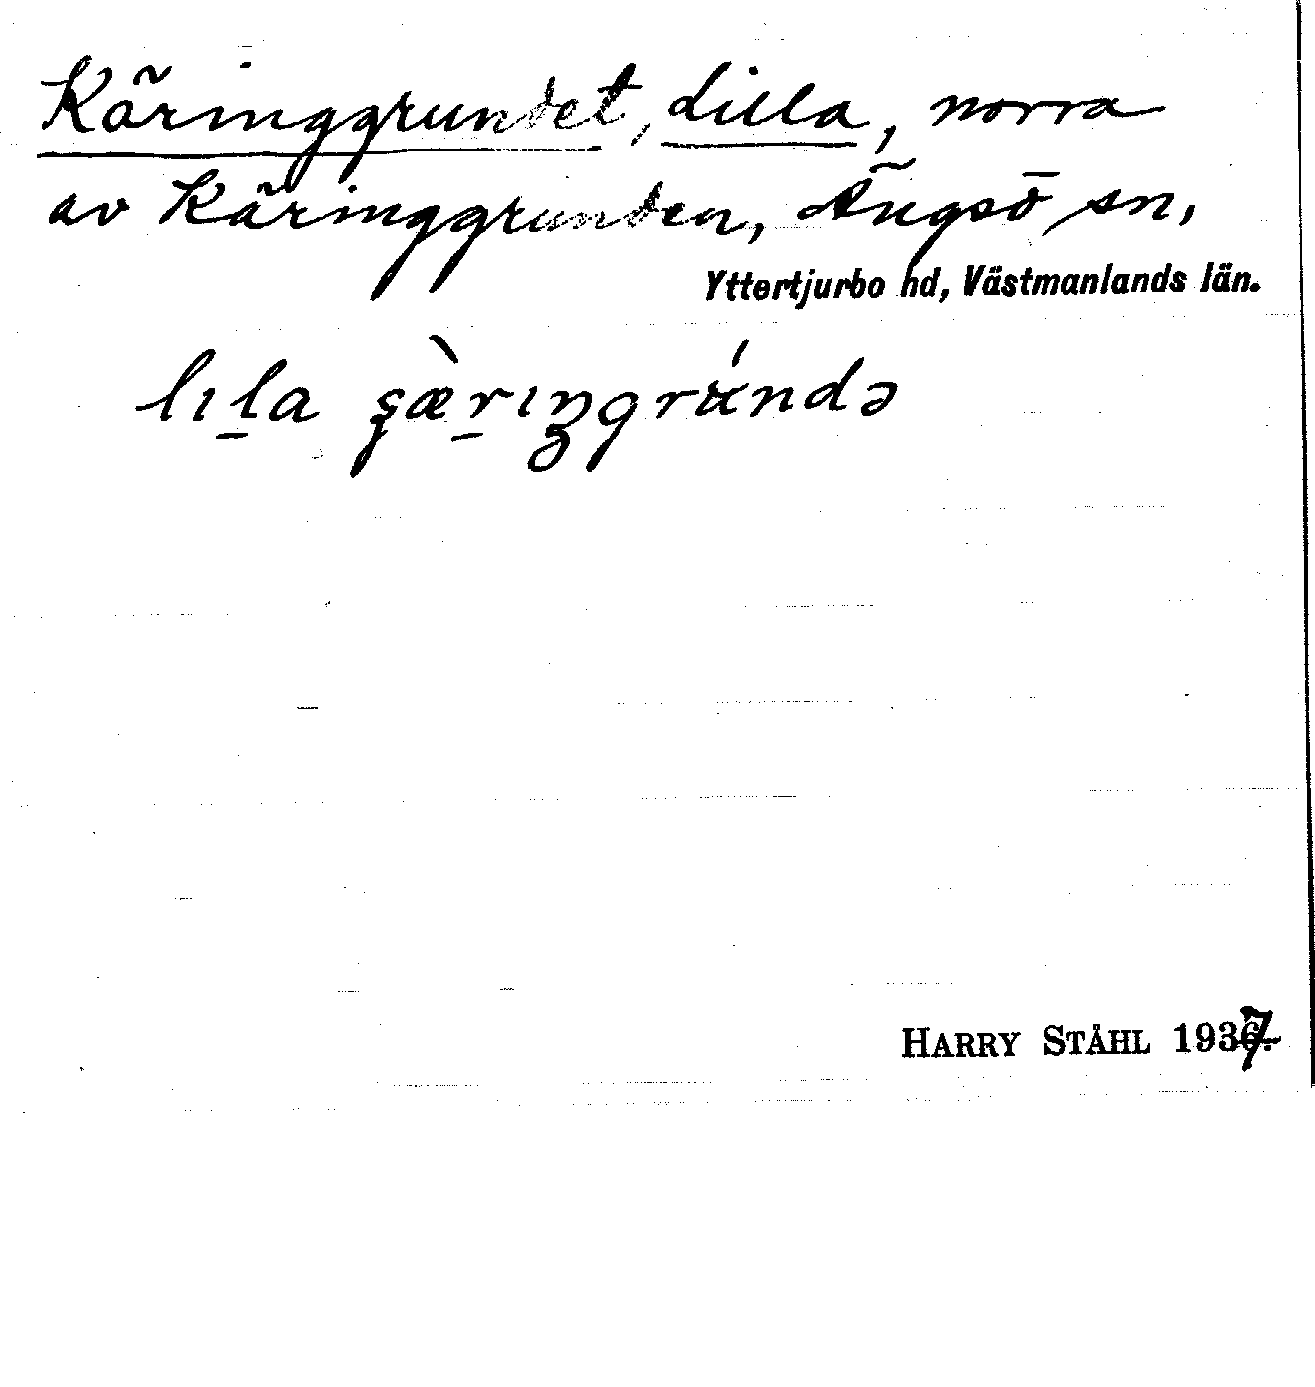 Käringgrundet, Lilla, norra
av Käringgrunden, Ängsö sn,
Yttertjurbo hd, Västmanlands län.
lıl̠a ʂæ̀r̠ıŋgrʉ́ndə
HARRY STÅHL 1937